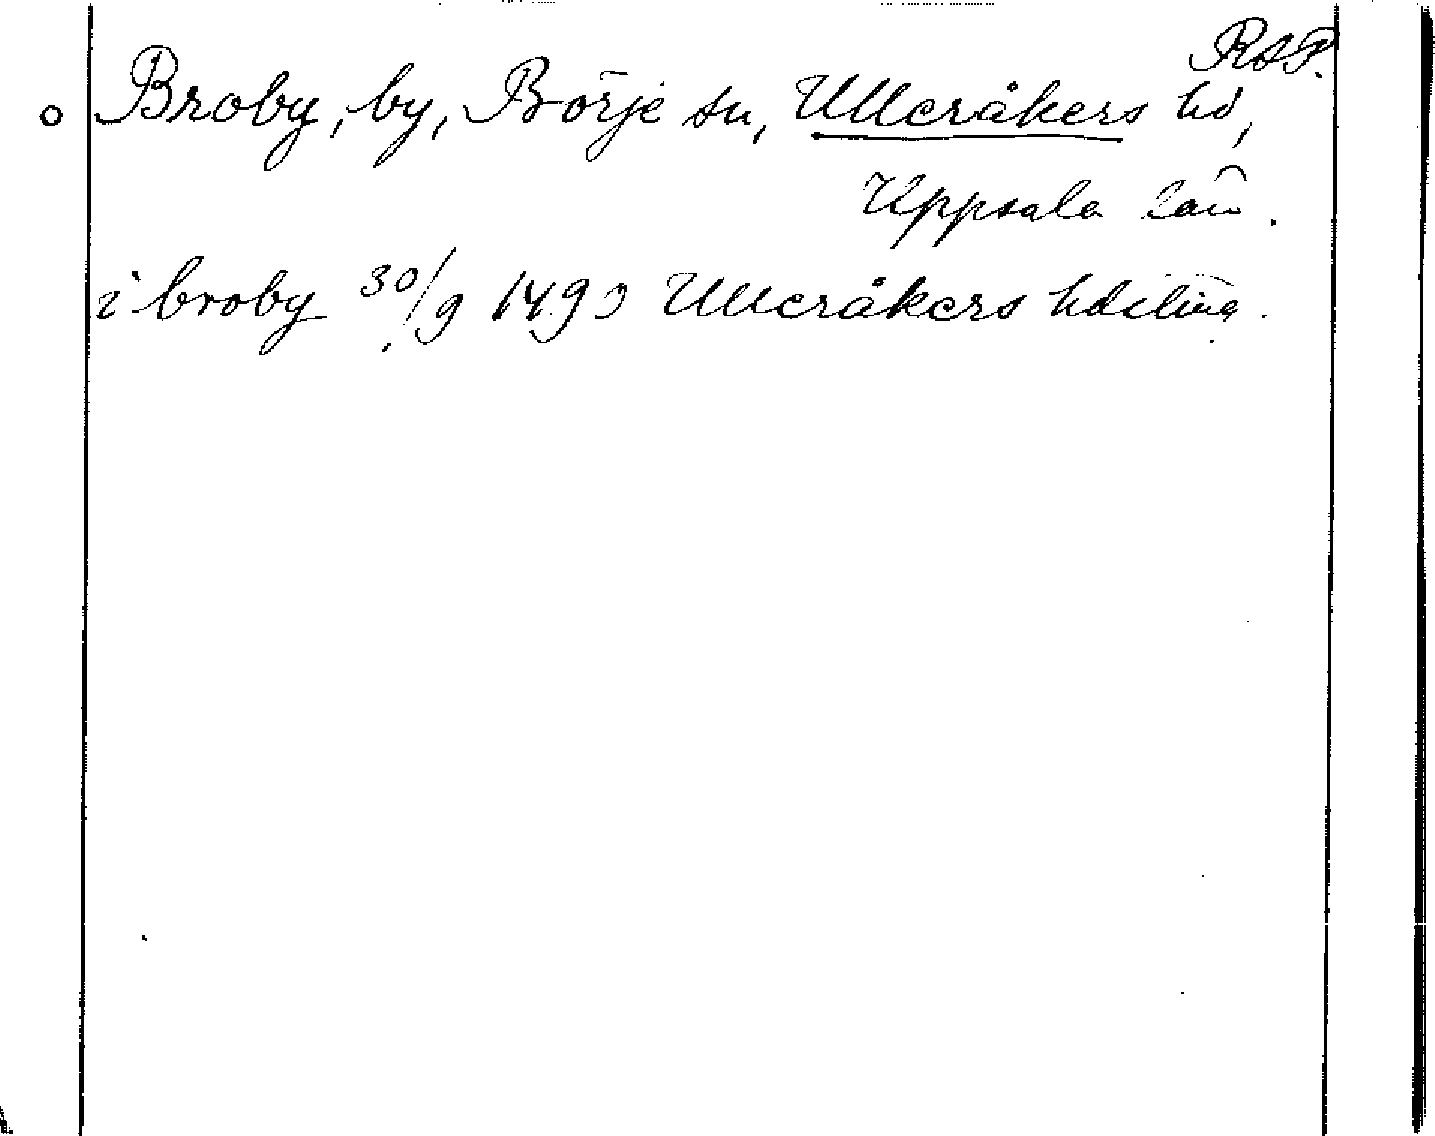 RAP.
Broby, by, Börje sn, Ulleråkers hd,
Uppsala län.
i broby 30/9 1490 Ulleråkers hdsting.